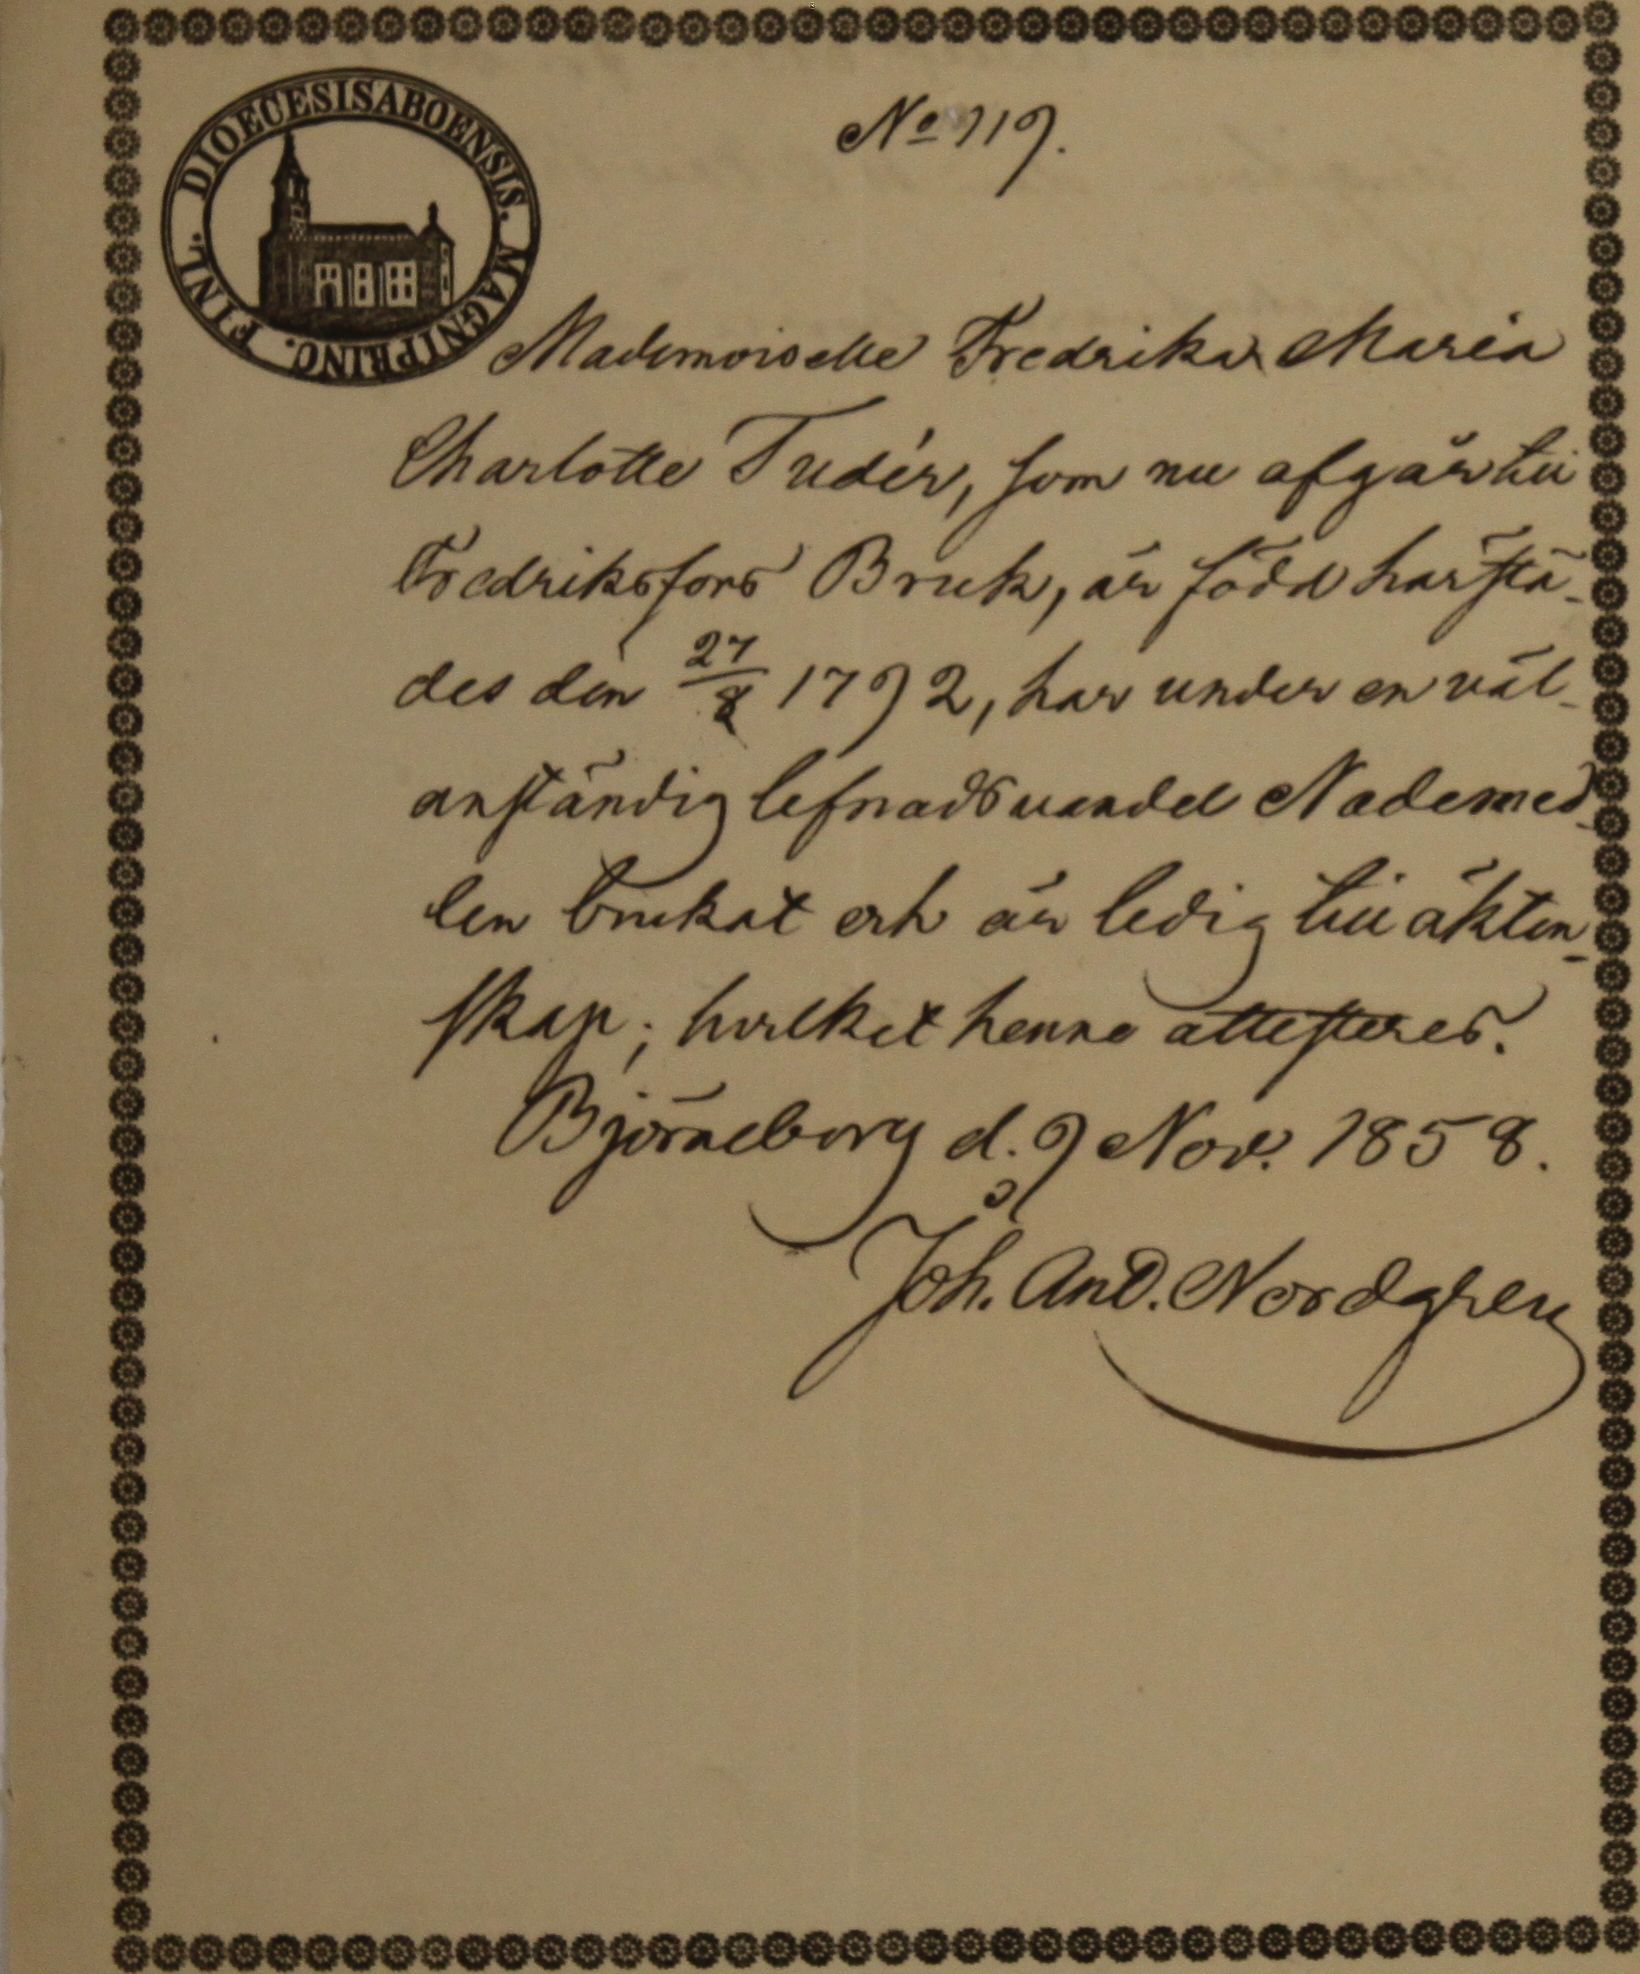 DIOECESIS ABOENSIS. MAGNI PRINC. FINL.
No 119.
Mademoiselle Fredrika Maria
Charlotte Tudér, som nu afgår till
Fredriksfors Bruk, är född härstä-
des den 27/8 1792, har under en väl-
anständig lefnadsvandel Nademed-
len brukat och är ledig till äkten-
skap; hvilket henne attesteres.
Björneborg d. 9 Nov. 1858.
Joh. And. Nordgren